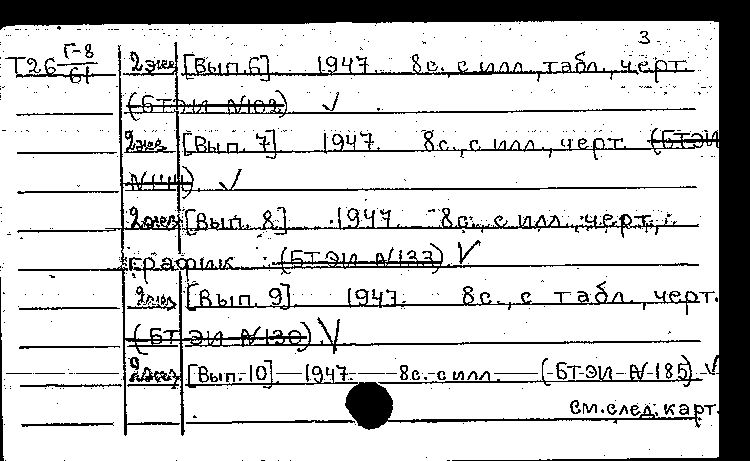 3
Т26 Г-8/61 2экз [Вып.6] 1947. 8с., с илл., табл., черт.
(БТЭИ №102) √
2экз [Вып. 7] 1947. 8с., с илл., черт. (БТЭИ
№144). √
2экз [Вып. 8] 1947. 8с., с илл., черт.,
график. (БТЭИ №133) √
2экз [Вып. 9] 1947. 8с., с табл., черт.
(БТЭИ №130). √
2экз [Вып. 10] 1947. 8с. с илл. (БТЭИ № 185) √
См. след. карт.